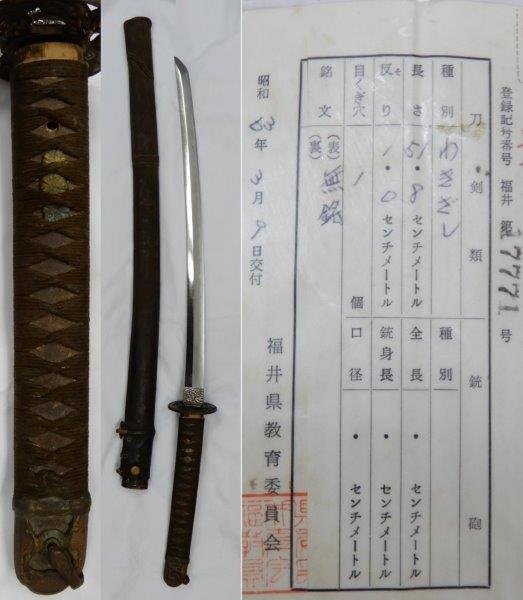 登録記号番号 福井 第17771号
刀剣類
銃砲
種別 わきざし 種別
長さ 51・8センチメートル 全長 ・ センチメートル
反り そ 1・0センチメートル 銃身長 ・ センチメートル
目くぎ穴 1個 口径 ・ センチメートル
銘文 (表) (裏) 無銘
昭和 年3月9日交付
福井県教育委員会